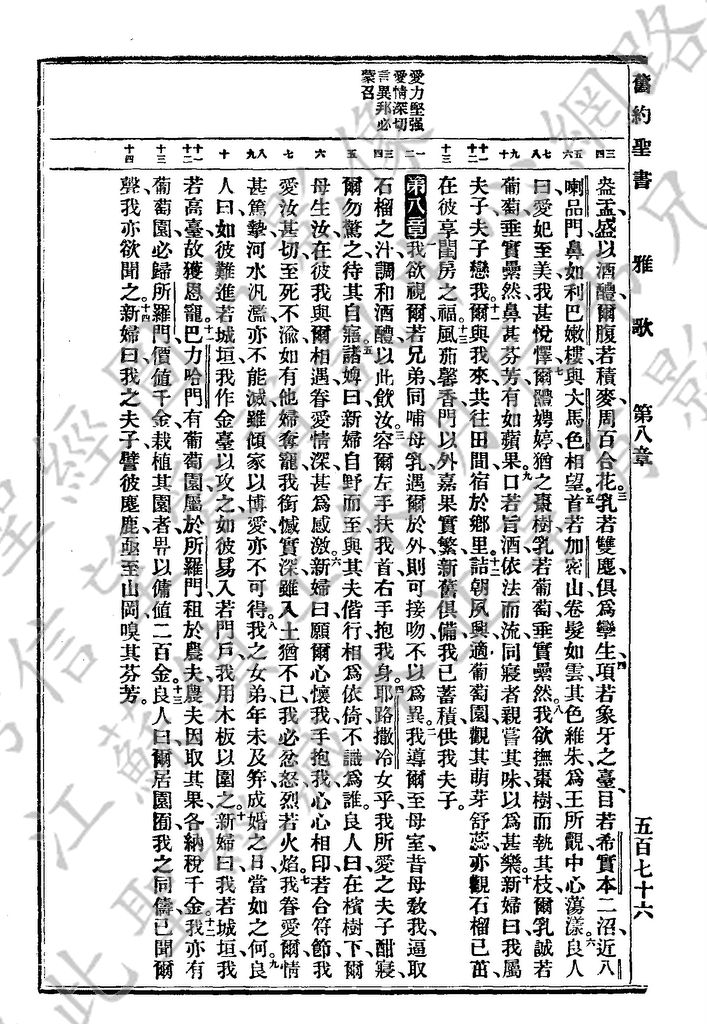 舊約聖書 雅歌 第八章 五百七十六
愛力堅强
愛情深切
言異邦必
蒙召
三四 盎盂盛以酒醴爾腹若積麥周百合花三乳若雙麀俱爲孿生四項若象牙之臺目若希實本二沼近八
五六 喇品門鼻如利巴嫩樓與大馬色相望五首若加密山卷髮如雲其色維朱爲王所觀中心蕩漾六良人
七八 曰愛妃至美我甚悅懌七爾體娉婷猶之棗樹乳若葡萄垂實纍然八我欲撫棗樹而執其枝爾乳誠若
九十 葡萄垂實纍然鼻其芬芳有如蘋果九口若旨酒依法而流同寢者親嘗其味以爲甚樂十新婦曰我屬
十一十二 夫子夫子戀我十一爾與我來共往田間宿於鄉里十二詰朝夙興適葡萄園觀其萌芽舒蕊亦觀石榴已茁
十三 在彼享閨房之福十三風茄馨香門以外嘉果實繁新舊俱備我已蓄積供我夫子
一二 第八章一我欲視爾若兄弟同哺母乳遇爾於外則可接吻不以爲異二我導爾至母室昔母敎我逼取
三四 石榴之汁調和酒醴以此飲汝三容爾左手扶我首右手抱我身四耶路撒冷女乎我所愛之夫子酣寢
五 爾勿驚之待其自寤五諸婢曰新婦自野而至與其夫偕行相爲依倚不識爲誰良人曰在檳樹下爾
六 母生汝在彼我與爾相遇眷愛情深甚爲感激六新婦曰願爾心懷我手抱我心心相印若台符節我
七 愛汝甚切至死不渝如有他婦奪寵我銜憾實深雖入土猶不已我必忿怒烈若火焰七我眷愛爾情
八九 甚篤摯河水汎濫亦不能滅雖傾家以博愛亦不可得八我之女弟年未及笄成婚之日當如之何九良
十 人曰如彼難進若城垣我作金臺以攻之如彼易入若門戶我用木板以圍之十新婦曰我若城垣我
十一十二 若高臺故獲恩寵十一巴力哈門有葡萄園屬於所羅門租於農夫農夫因取其果各納稅千金十二我亦有
十三 葡萄園必歸所羅門價値千金栽植其園者畀以傭値二百金十三良人曰爾居園囿我之同儔已聞爾
十四 聲我亦欲聞之十四新婦曰我之夫子譬彼麈鹿亟至山岡嗅其芬芳